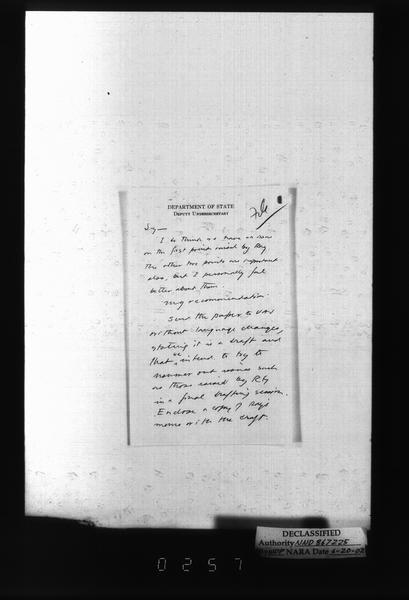 DEPARTMENT OF STATE
DEPUTY UNDERSECRETARY
File
I do think we have an issue
on the first point raised by Ray
The other two points are important
also, but I personally feel
better about them.
My recommendation:
Send the paper to
without language changes,
stating it is a draft and
that we intend to try to
hammer out issues such
as those raised by
in a final drafting session.
Enclose a copy of Ray's
memo with the draft.
DECLASSIFIED
Authority NND 867225
NARA Date
0257